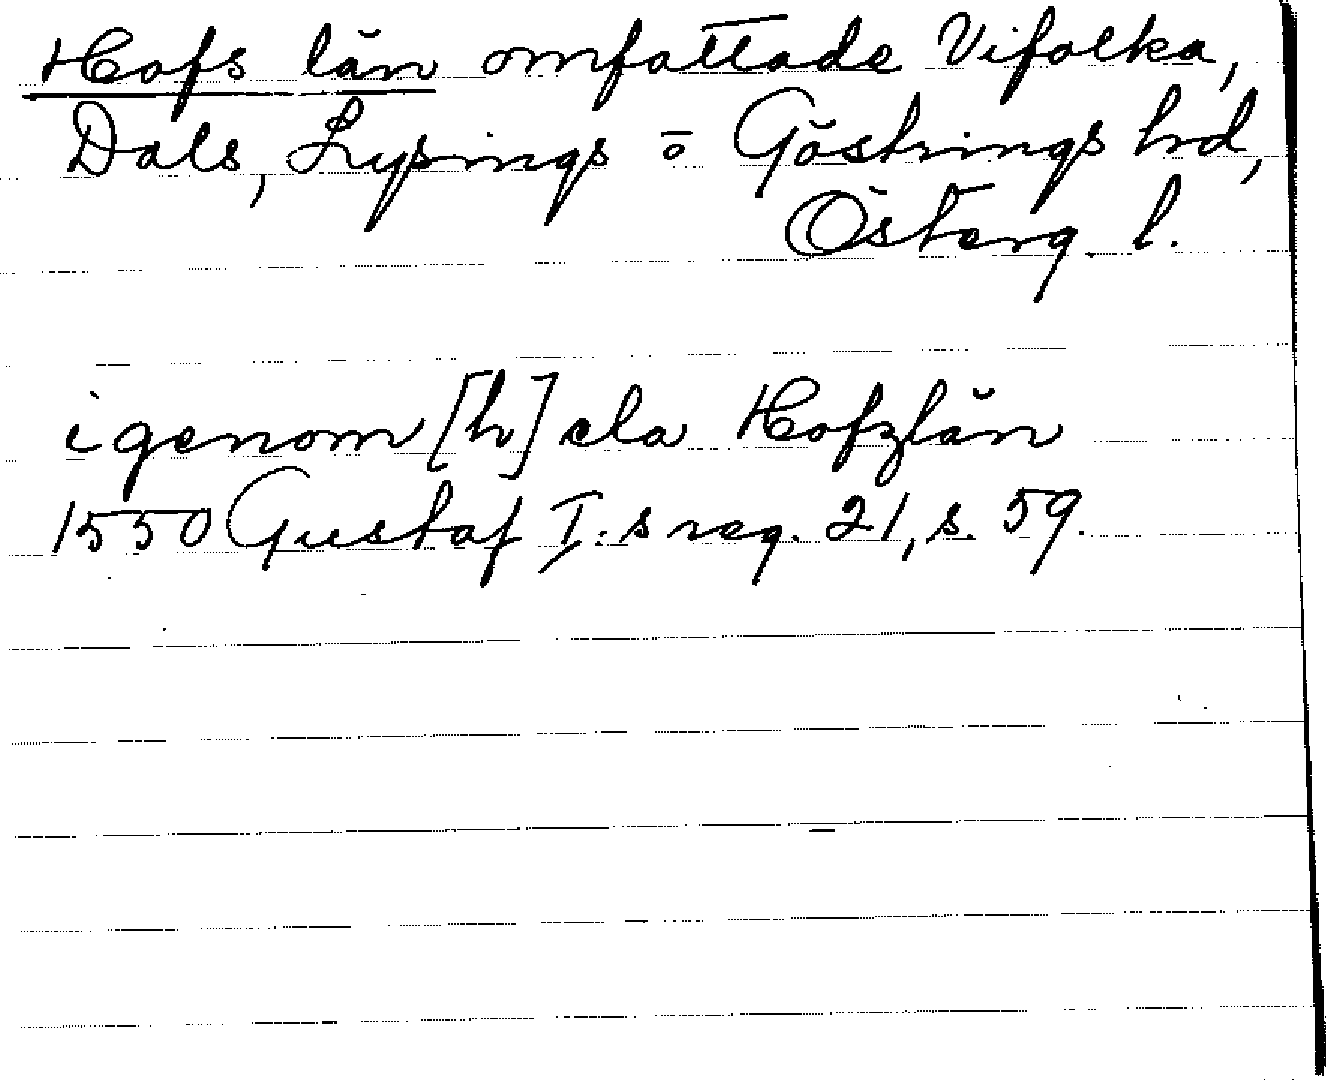 Hofs län omfattade Vifolka,
Dals, Lysings o Göstrings hrd,
Österg. l.
igenom [h]ela Hofzlän
1550 Gustaf I:s reg. 21, s. 59.